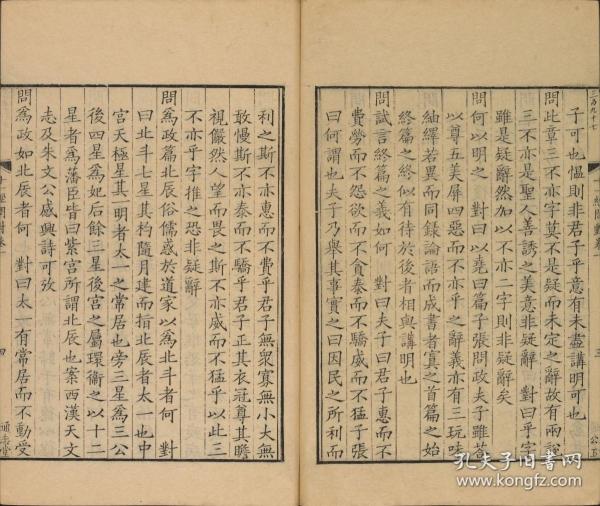 子可也慍則非君子乎意有未盡講明可也
問此章三不亦字莫不是疑而未定之辭故有兩說
三不亦是聖人善誘之美意非疑辭 對曰乎字
雖是疑辭然加以不亦二字則非疑辭矣
問何以明之 對曰以堯曰篇子張問政夫子雖荅
以尊五美屏四惡而不亦乎之辭義亦有三玩味
紬繹若異而同錄論語而成書者寘之首篇之始
終篇之終似有待於後者相與講明也
問試言終篇之義如何 對曰夫子曰君子惠而不
費勞而不怨欲而不貪泰而不驕威而不猛子張
曰何謂也夫子乃舉其事實之曰因民之所利而
三百九十七
三
公五
利之斯不亦惠而不費乎君子無衆寡無小大無
敢慢斯不亦泰而不驕乎君子正其衣冠尊其瞻
視儼然人望而畏之斯不亦威而不猛乎以此三
不亦乎字推之恐非疑辭
問爲政篇北辰俗儒惑於道家以爲北斗者何 對
曰北斗七星其杓隨月建而指北辰者太一也中
宮天極星其一明者太一之常居也旁三星爲三公
後四星爲妃后餘三星後宮之屬環衞之以十二
星者爲藩臣皆曰紫宮所謂北辰也案西漢天文
志及朱文公感興詩可攷
問爲政如北辰者何 對曰太一有常居而不動受
四
通志堂
孔夫子旧书网
www.kongfz.com